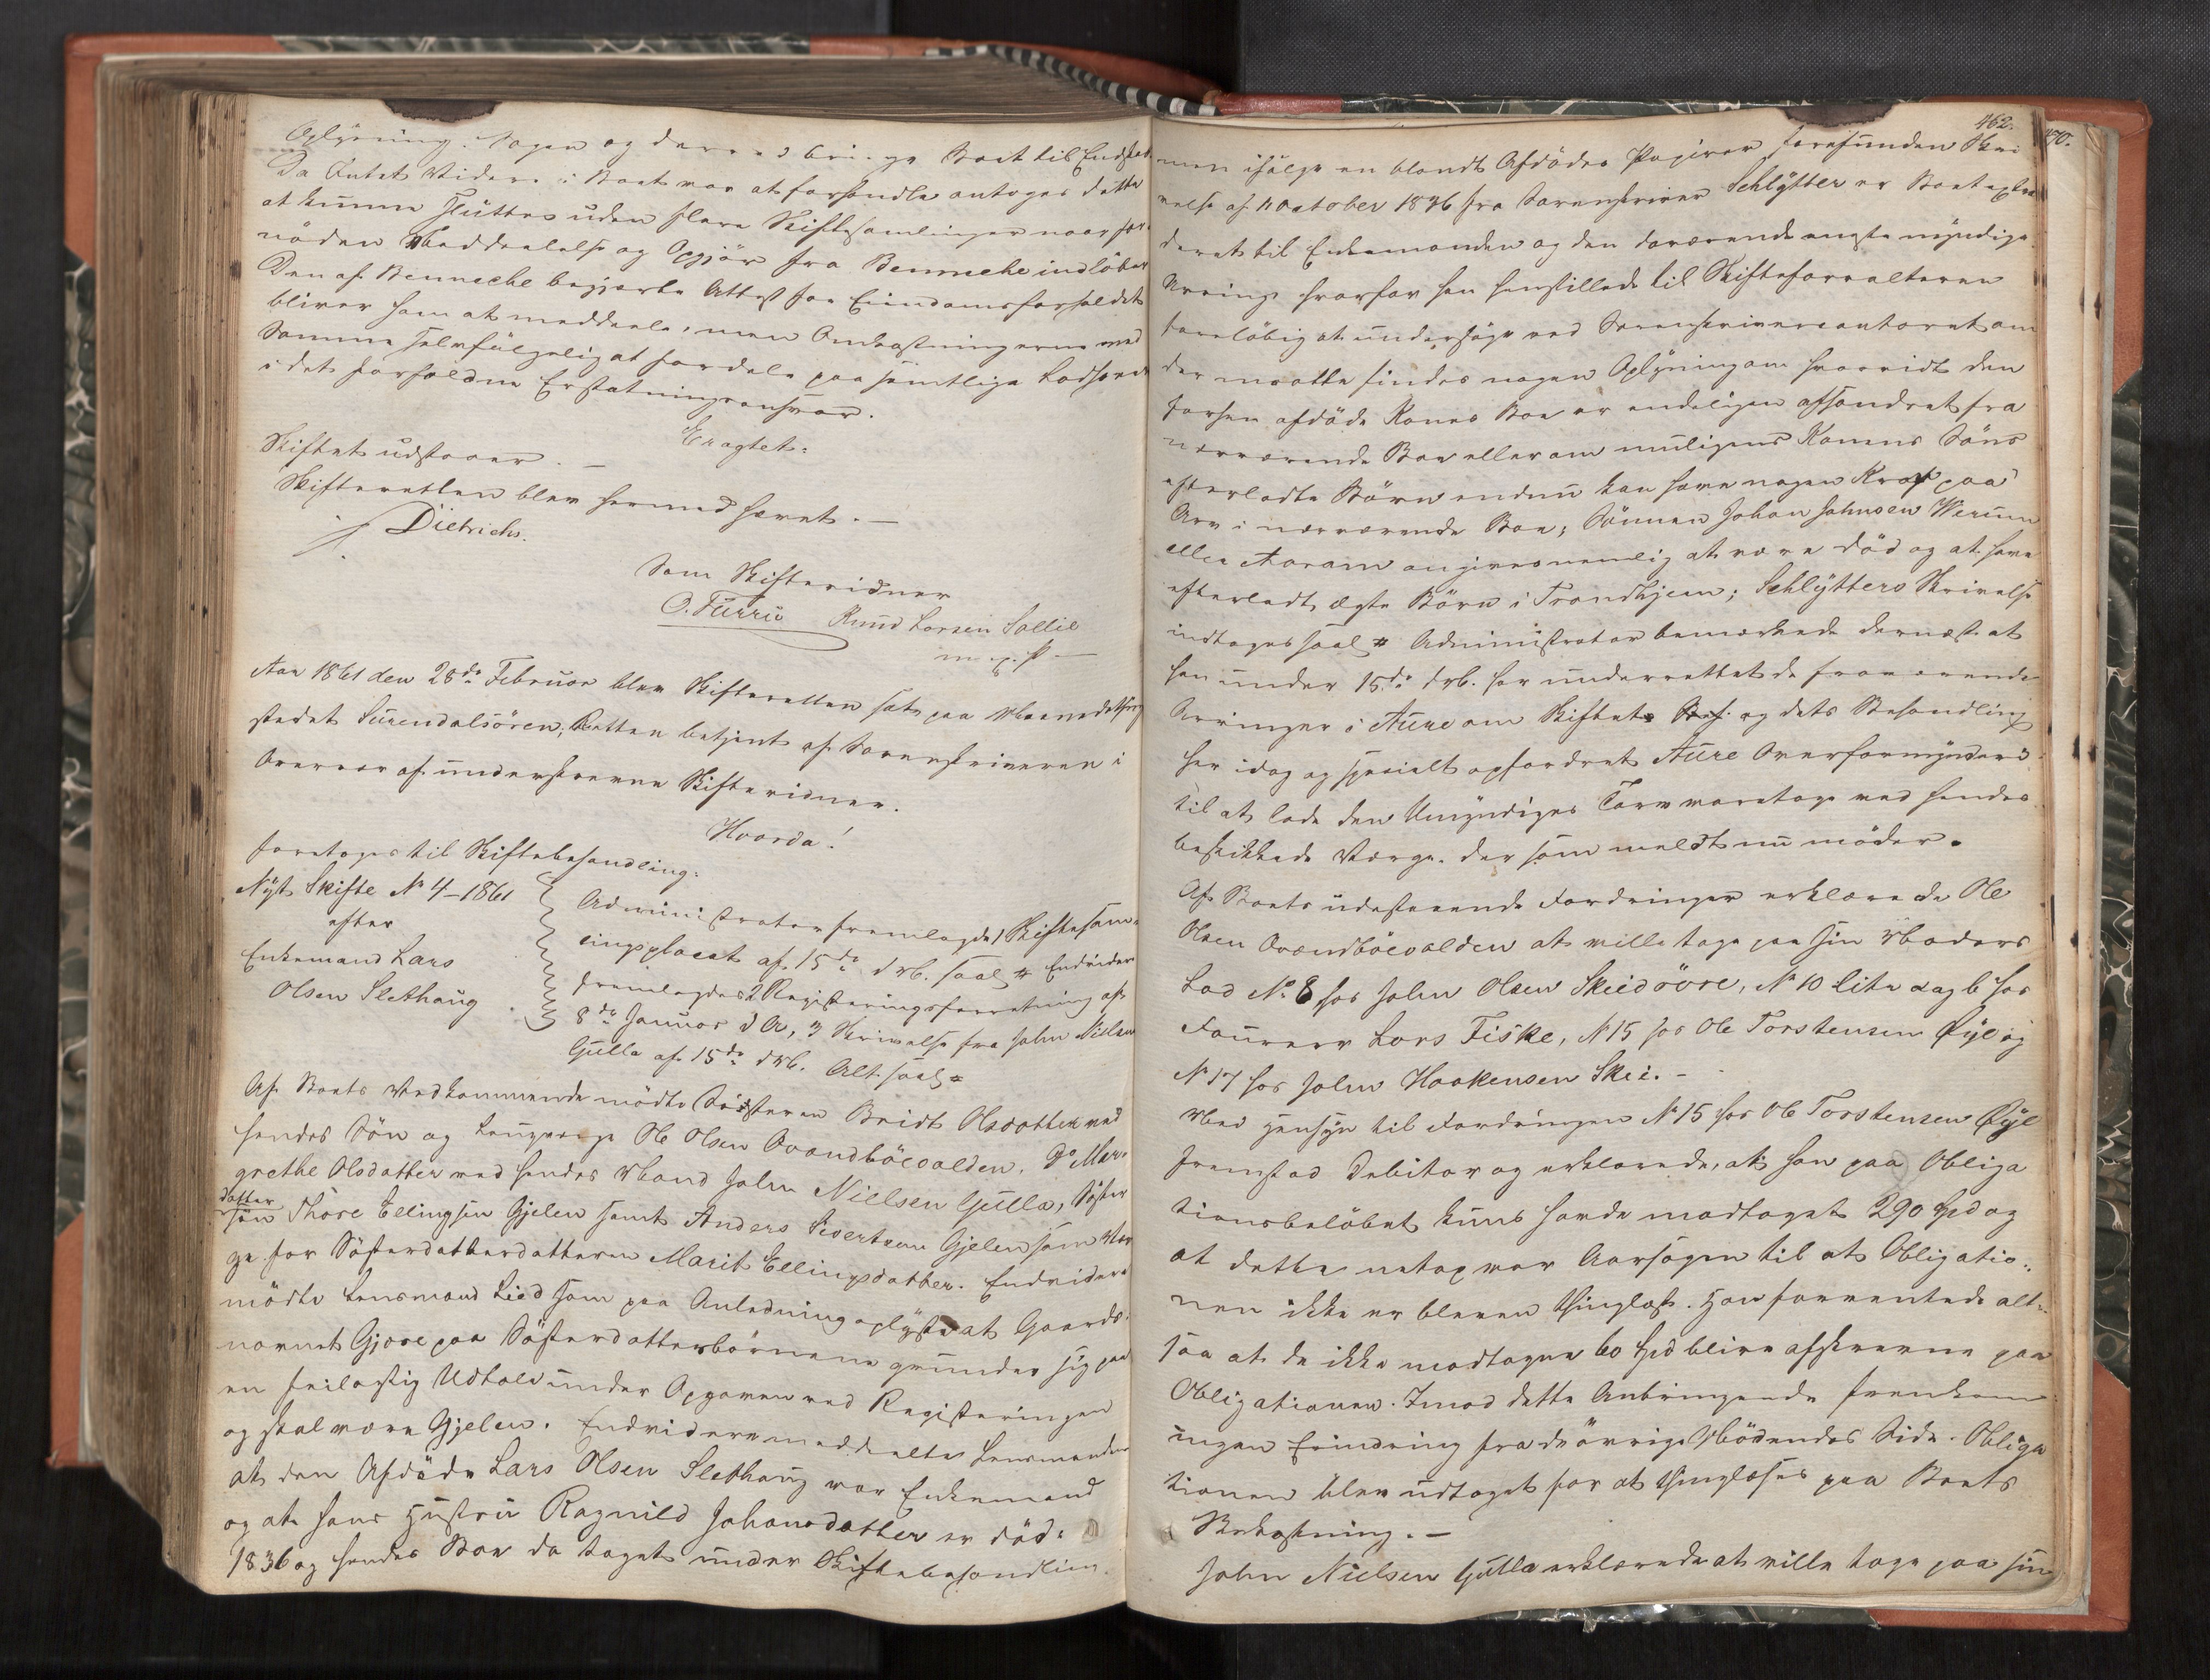 Oplysning i Sagen og derved bringe Boet til Endskab
Da Intet Videre i Boet var at forhandle antoges dette
at kunne sluttes uden flere Skiftesamlinger naar for-
nöden Meddelelse og Opgjör fra Benneche indlöber
Den af Benneche begjærte Attest for Eiendomsforholdet
bliver ham at meddeele, men Omkostningerne ved
Samme selvfölgelig at fordele paa samtlige Lodhavere
i det forholdne Erstatningsansvar.
Eragtet:
Skiftet udstaaer. –
Skifteretten blev hermed hævet. –
Dietrichs.
Som Skiftevidner
O. Furru Knud Larsen Sollie
m. p. P. –
Aar 1861 den 28de Februar blev Skifteretten sat paa Maanedsthing
stedet Surendalsören; Retten betjent af Sorenskriveren i
Overvær af underskrevne Skiftevidner.
Hvorda!
foretoges til Skiftebehandling:
Nyt Skifte No 4–1861
efter
Enkemand Lars
Olsen Slethaug
Administrator fremlagde 1 Skiftesam-
lingsplacat af 15de ds. saal. # Endvidere
fremlagdes 2 Registeringsforretning af
8de Januar d A, 3 Skrivelse fra John Nielsen
Gulla af 15de ds. Alt saal. #
Af Boets Vedkommende mödte Sösteren Bridt Olsdatter ved
hendes Sön og Laugværge Ole Olsen Ovandböevalden. Do Mar-
grethe Olsdatter ved hendes Mand John Nielsen Gulla, Söster
datter
sön Thore Ellingsen Gjelen samt Anders Sivertsen Gjelen som Vær
ge for Sösterdatterdatteren Marit Ellingsdatter. Endvidere
mödte Lensmand Lied som paa Anledning oplyste at Gaards-
navnet Gjore paa Sösterdatterbörnene grunder sig paa
en feilagtig Udtale under Opgaven ved Registeringen
og skal være Gjelen. Endvidere meddeelte Lensmanden
at den Afdöde Lars Olsen Slethaug var Enkemand
og at hans Hustru Ragnild Johansdatter er död i
1836 og hendes Boe da taget under Skiftebehandling.
462.
470.
men ifölge en blandt Afdödes Papirer forefunden Skri
velse af 11 October 1836 fra Sorenskriver Schlytter er Boet extra
deret til Enkemanden og den daværende eneste myndige
Arving hvorfor han henstillede til Skifteforvalteren
foreløbig at undersöge ved Sorenskrivercontoret om
der maatte findes nogen Oplysning om hvorvidt den
forhen afdöde Kones Boe er endeligen afsondret fra
nærværende Boe eller om muligens Konens Söns
efterladte Börn endnu kan have nogen Krav paa
Arv i nærværende Boe; Sönnen Johan Johnsen Werum
eller Aaram angives nemlig at være död og at have
efterladt ægte Börn i Trondhjem; Schlytters Skrivelse
indtages saal. # Administrator bemærkede dernæst at
han under 15de ds. har underrettet de fraværende
Arvinger i Aure om Skiftet og dets Behandling
her idag og specielt opfordret Aure Overformynderi
til at lade den Umyndiges Tarv varetage ved hendes
beskikkede Værge. der som meldt nu möder.
Af Boets udestaaende Fordringer erklærede Ole
Olsen Ovandböevalden at ville tage paa sin Moders
Lod No 8 hos John Olsen Skeidöore, No 10 Litr a og b hos
Foureer Lars Fiske, No 15 hos Ole Torstensen Øye og
No 17 hos John Haakensen Skei. –
Med Hensyn til Fordringen No 15 hos Ole Torstensen Øye
fremstod Debitor og erklærede, at han paa Obliga
tionsbelöbet kuns havde modtaget 290 Spd og
at dette netop var Aarsagen til at Obligatio-
nen ikke er bleven thinglæst. Han forventede alt-
saa at de ikke modtagne 60 Spd blive afskrevne paa
Obligationen. Imod dette Anbringende fremkom
ingen Erindring fra de övrige Mödendes Side. Obliga
tionen blev udtaget for at thinglæses paa Boets
Bekostning. –
John Nielsen Gulla erklærede at ville tage paa sin